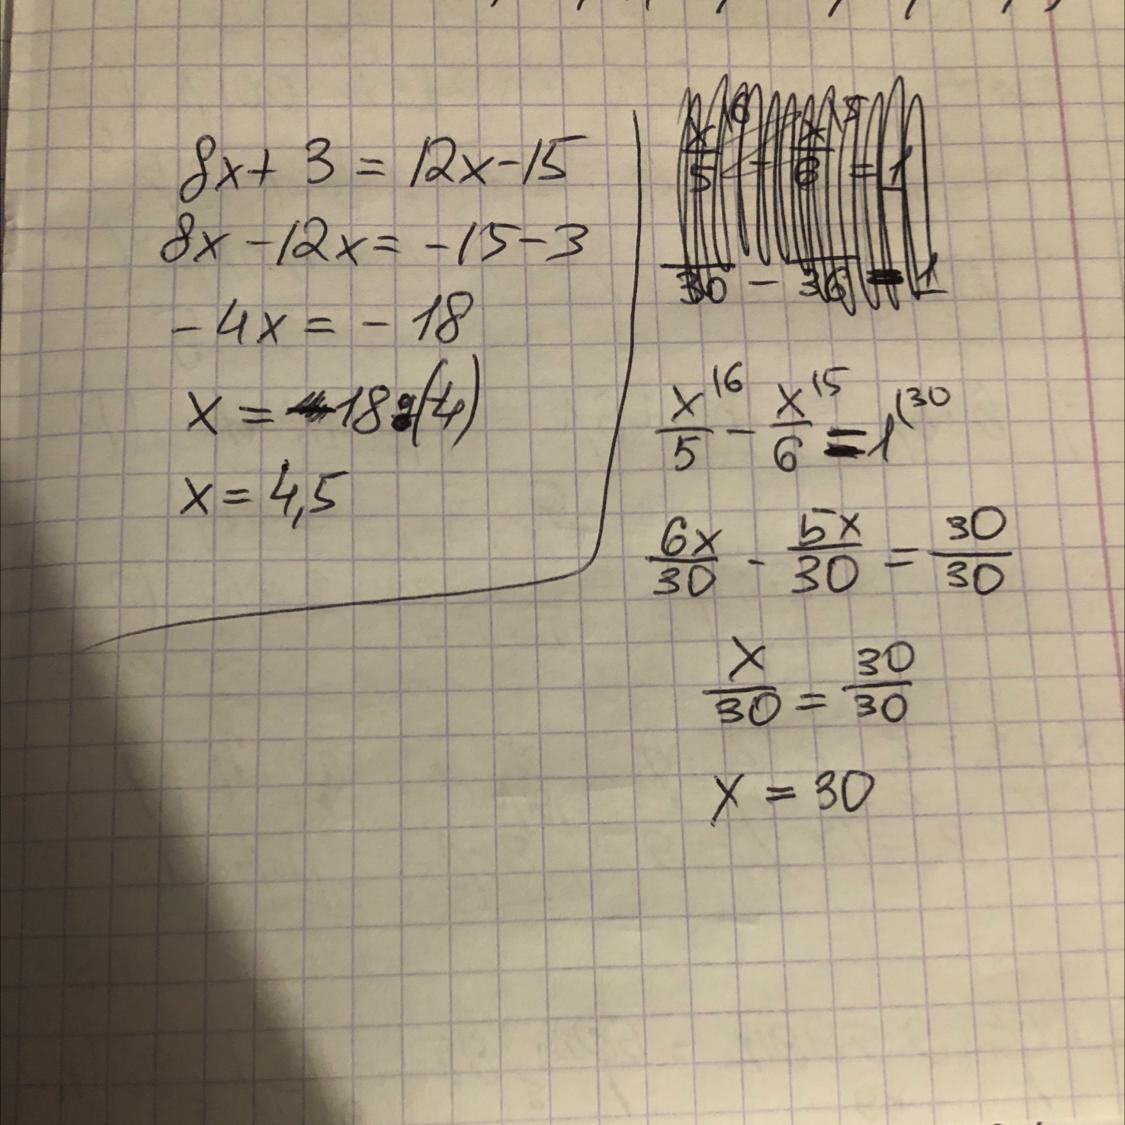 8x + 3 = 12x - 15
8x - 12x = -15 - 3
-4x = -18
x = -18 : (-4)
x = 4,5
x/5 - x/6 = 1
30 - 36 = 1
x/5 ⁽⁶ - x/6 ⁽⁵ = 1 ⁽³⁰
6x/30 - 5x/30 = 30/30
x/30 = 30/30
x = 30